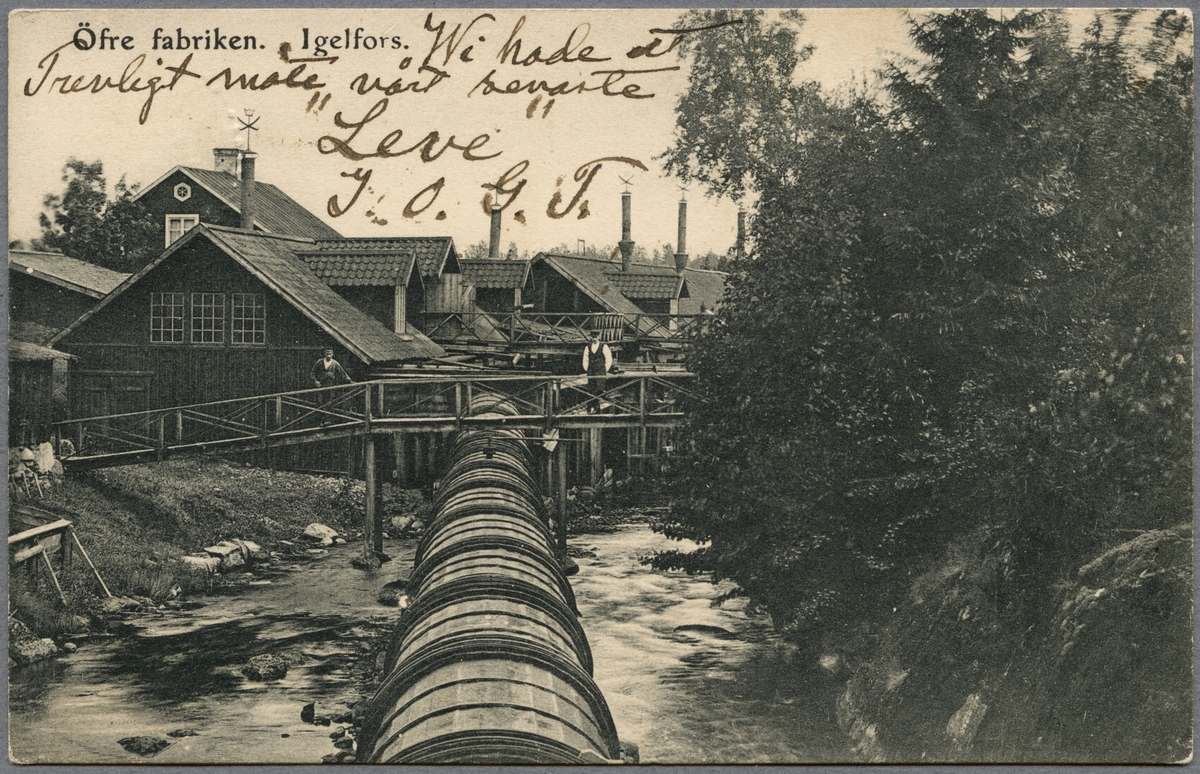 Öfre fabriken. Igelfors. Wi hade et
Trevligt möte vårt senaste
"Leve"
I. O. G. T.